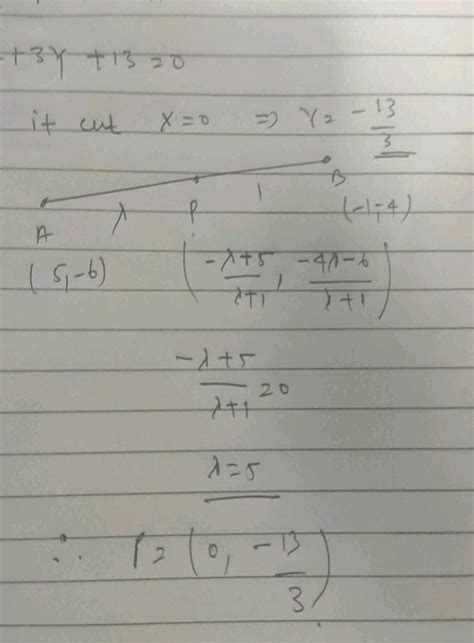 +3Y +13 = 0
it cut X=0 => Y = -13/3
λ P 1 B
A (-1,-4)
(5,-6) ((-λ+5)/(λ+1), (-4λ-6)/(λ+1))
(-λ+5)/(λ+1) = 0
λ=5
∴ P = (0, -13/3)